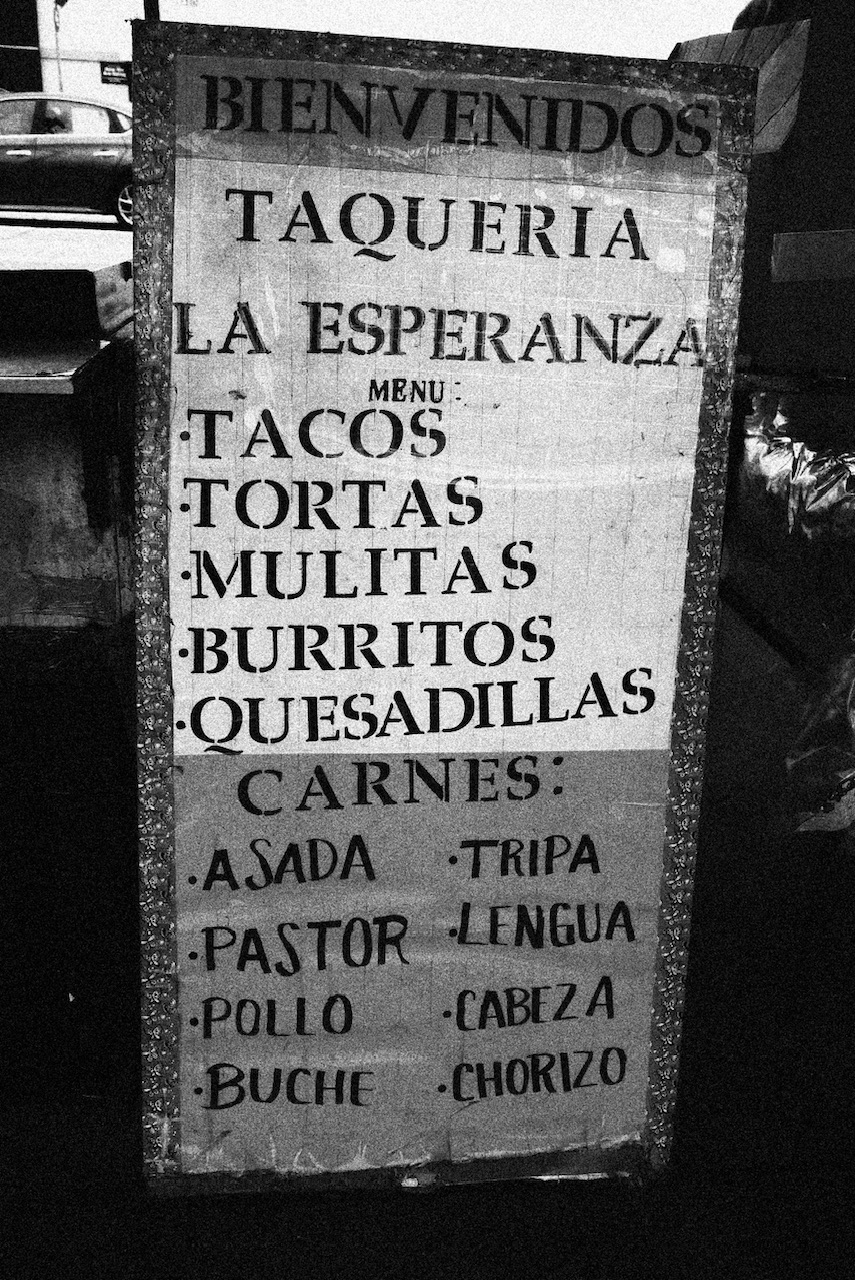 BIENVENIDOS
TAQUERIA
LA ESPERANZA
MENU:
·TACOS
·TORTAS
·MULITAS
·BURRITOS
·QUESADILLAS
CARNES:
·ASADA
·PASTOR
·POLLO
·BUCHE
·TRIPA
·LENGUA
·CABEZA
·CHORIZO